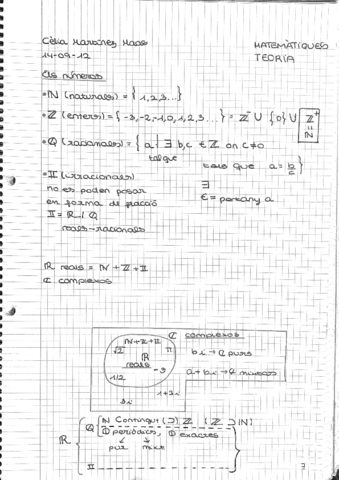 Cèlia Martínez Maos
MATEMÀTIQUES
14-09-12
TEORIA
Els números
• ℕ (naturals) = { 1,2,3...}
• ℤ (enters) = {-3,-2,-1,0,1,2,3...} = ℤ⁻ ∪ {0} ∪ ℤ⁺
= ℕ
• ℚ (racionals) = { a / ∃ b,c ∈ ℤ on c≠0
tal que
tals que a = b/c }
• 𝕀 (irracionals)
no es poden posar
en forma de fracció
∃
∈ = pertany a
𝕀 = ℝ / ℚ
reals - racionals
ℝ reals = ℕ + ℤ + 𝕀
ℂ complexos
ℂ complexos
ℕ+ℤ+𝕀
√2
π
ℝ
reals
-3
1/2
bi → ℂ purs
a + bi → ℂ mixtos
1+3i
3i
ℝ
ℚ
ℕ Contingut (⊃) ℤ (ℤ ⊃ ℕ)
periòdics, exactes
pur mixt
𝕀